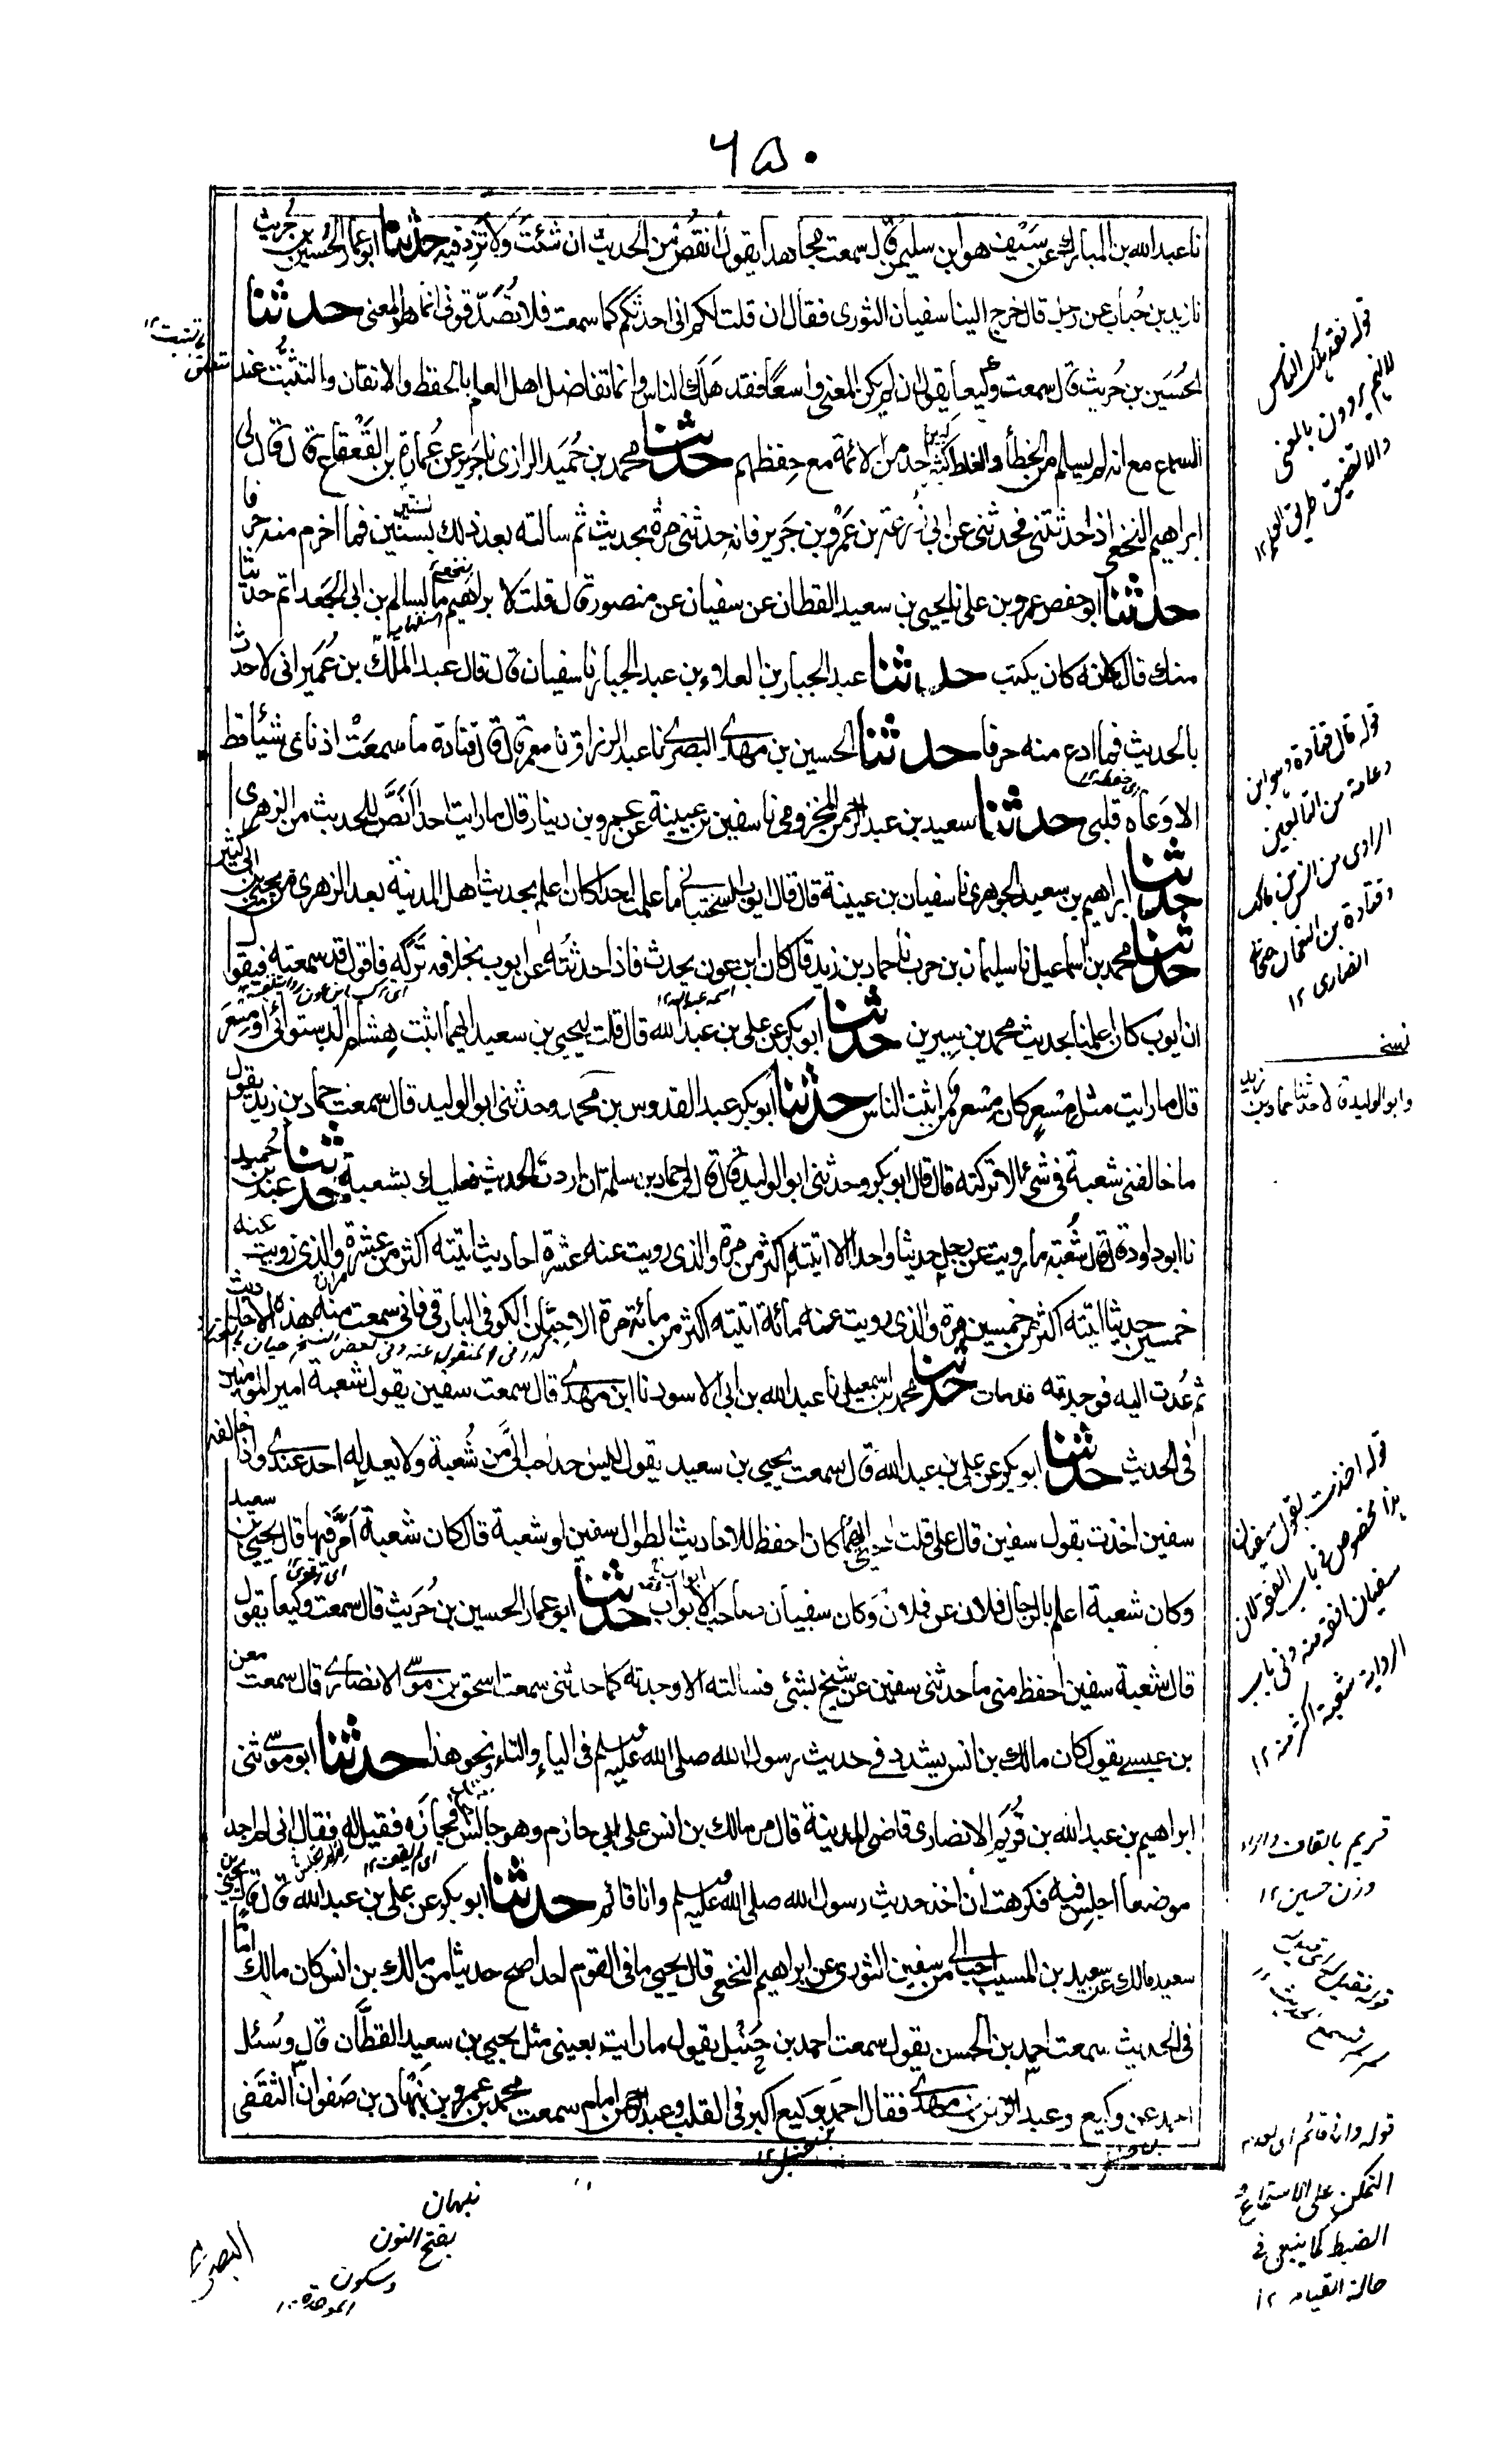 ٦٥٠
نا عبد الله بن المبارك عن سَيْف هو ابن سليمن قال سمعت مجاهدا يقول اَنْقُصْ من الحديث ان شئت ولا تَزِد فيه حدثنا ابو عمار الحُسين بن حُريث
نا زيد بن حُباب عن رجل قال خرج الينا سفيان الثورى فقال ان قلت لكم انى احدثكم كما سمعت فلا تُصَدِّقونى انما هو المعنى حدثنا
الحُسَين بن حُريث قال سمعت وكيعا يقول ان لم يكن المعنى واسعًا فقد هَلَكَ الناس وانما تفاضل اهل العلم بالحفظ والاتقان والتثبُّت عند
السماع مع انه لم يسلم من الخطأ والغلط كثير احد من الائمة مع حِفظهم حدثنا محمد بن حُمَيد الرازى نا جرير عن عُمارة بن القَعْقاع قال قال لى
ابراهيم النخعى اذا حدثتنى فحدثنى عن ابى زُرعة بن عَمْرو بن جَرير فانه حدثنى مرة بحديث ثم سالته بعد ذلك بسنتين فما اخرم منه حرفا
حدثنا ابو حفص عمرو بن على نا يحيى بن سعيد القطان عن سفيان عن منصور قال قلت لا براهيم ما لسالم بن ابى الجَعد اتم حديثا
منك قال لانه كان يكتب حدثنا عبد الجبار بن العلاء بن عبد الجبار نا سفيان قال قال عبد الملك بن عُمَير انى لاحدث
بالحديث فما ادع منه حرفا حدثنا الحسين بن مهدى البصرى نا عبد الرزاق نا معمر قال قال قتادة ما سمعَتْ اذناى شيئا قط
الا وَعاه قلبى حدثنا سعيد بن عبد الرحمن المخزومى نا سفين بن عيينة عن عمرو بن دينار قال ما رايت احدا اَنَصَّ للحديث من الزهرى
حدثنا ابراهيم بن سعيد الجوهرى نا سفيان بن عيينة قال قال ايوب السختيانى ما علمت احدا كان اعلم بحديث اهل المدينة بعد الزهرى من يحيى بن ابى كثير
حدثنا محمد بن اسماعيل نا سليمان بن حرب نا حماد بن زيد قال كان ابن عون يحدث فاذا حدثتُه عن ايوب بخلافه تَرَكه فاقول قد سمعته فيقول
ان ايوب كان اعلمنا بحديث محمد بن سيرين حدثنا ابو بكر عن على بن عبد الله قال قلت ليحيى بن سعيد ايهما اثبت هشام الدستوائى او مِسْعَر
قال ما رايت مثل مِسْعر كان مِسْعر من اثبت الناس حدثنا ابو بكر عبد القدوس بن محمد وحدثنى ابو الوليد قال سمعت حماد بن زيد يقول
ما خالفنى شعبة فى شئ الا تركته قال قال ابو بكر وحدثنى ابو الوليد قال قال لى حماد بن سلمة ان اردت الحديث فعليك بشعبة حدثنا عبد بن حُميد
نا ابو داود قال قال شُعبة ما رويت عن رجل حديثا واحدا الا اتيته اكثر من مرة والذى رويت عنه عشرة احاديث اتيته اكثر من عشرة مرار والذى رويت عنه
خمسين حديثا اتيته اكثر من خمسين مرة والذى رويت عنه مائة اتيته اكثر من مائة مرة الا حيان الكوفى البارقى فانى سمعت منه هذه الاحاديث
ثم عُدت اليه فوجدته قد مات حدثنا محمد بن اسمعيل نا عبد الله بن ابى الاسود نا ابن مهدى قال سمعت سفين يقول شعبة امير المؤمنين
فى الحديث حدثنا ابو بكر عن على بن عبد الله قال سمعت يحيى بن سعيد يقول ليس احد احب الىَّ من شُعبة ولا يعدله احد عندى واذا خالفه
سفين اخذت بقول سفين قال على قلت ليحيى ايهما كان احفظ للاحاديث الطوال سفين او شعبة قال كان شعبة اَمَرَّ فيها قال يحيى بن سعيد
وكان شعبة اعلم بالرجال فلان عن فلان وكان سفيان صاحب الابواب حدثنا ابو عمار الحسين بن حُريث قال سمعت وكيعا يقول
قال شعبة سفين احفظ منى ما حدثنى سفين عن شيخ بشئ فسالته الا وجدته كما حدثنى سمعت اسحق بن موسى الانصارى قال سمعت معن
بن عيسى يقول كان مالك بن انس يشدد فى حديث رسول الله صلى الله عليه وسلم فى الياء والتاء ونحو هذا حدثنا ابو موسى ثنى
ابراهيم بن عبد الله بن قُريم الانصارى قاضى المدينة قال مر مالك بن انس على ابى حازم وهو جالس فجازَه فقيل له فقال انى لم اجد
موضعا اجلس فيه فكرهت ان اخذ حديث رسول الله صلى الله عليه وسلم وانا قائم حدثنا ابو بكر عن على بن عبد الله قال قال يحيى بن
سعيد مالك عن سعيد بن المسيب احب الى من سفين الثورى عن ابراهيم النخعى قال يحيى ما فى القوم احد اصح حديثا من مالك بن انس كان مالك اماما
فى الحديث سمعت احمد بن الحسن يقول سمعت احمد بن حَنْبل يقول ما رايت بعينى مثل يحيى بن سعيد القطَّان قال وسُئل
احمد عن وكيع وعبد الرحمن بن مهدى فقال احمد وكيع اكبر فى القلب وعبد الرحمن امام سمعت محمد بن عمرو بن نَبهان بن صفوان الثقفى
البصرى
نبهان
بفتح النون
وسكون
الموحدة ١٢
قوله فقد هلك الناس
لانهم يروون بالمعنى
والا لضيق طريق العلم ١٢
قوله قال قتادة وهو ابن
دعامة من التابعين
الراوى من انس بن مالك
وقتادة بن النعمان صحابى
انصارى ١٢
نسخه
وابو الوليد قالا حدثنا حماد بن زيد
قوله اخذت بقول سفيان
هذا مخصوص فى باب الفقه لان
سفيان افقه منه وفى باب
الرواية شعبة اكثر منه ١٢
قريم بالقاف والراء
وزن حسين ١٢
قوله وانا قائم اى لعدم
التمكن على الاستماع و
الضبط كما ينبغى فى
حالة القيام ١٢